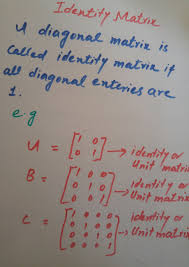 Identity Matrix
A diagonal matrix is
Called identity matrix if
all diagonal enteries are
1.
e.g
U = [1 0 → identity or
0 1] Unit matrix
B = [1 0 0
0 1 0 → identity or
0 0 1] Unit matrix
C = [1 0 0 0
0 1 0 0 → identity or
0 0 1 0 Unit matrix
0 0 0 1]